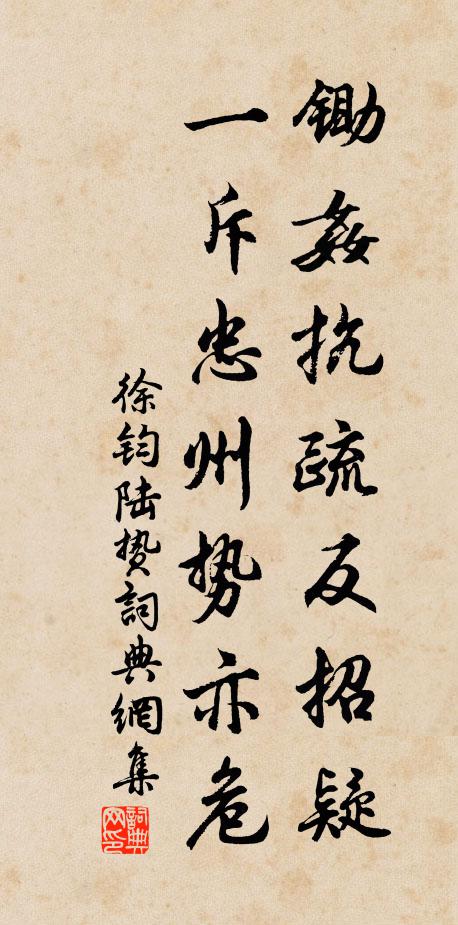 锄奸抗疏反招疑
一斥忠州势亦危
徐钧陆贽詞典網集
詞典网印